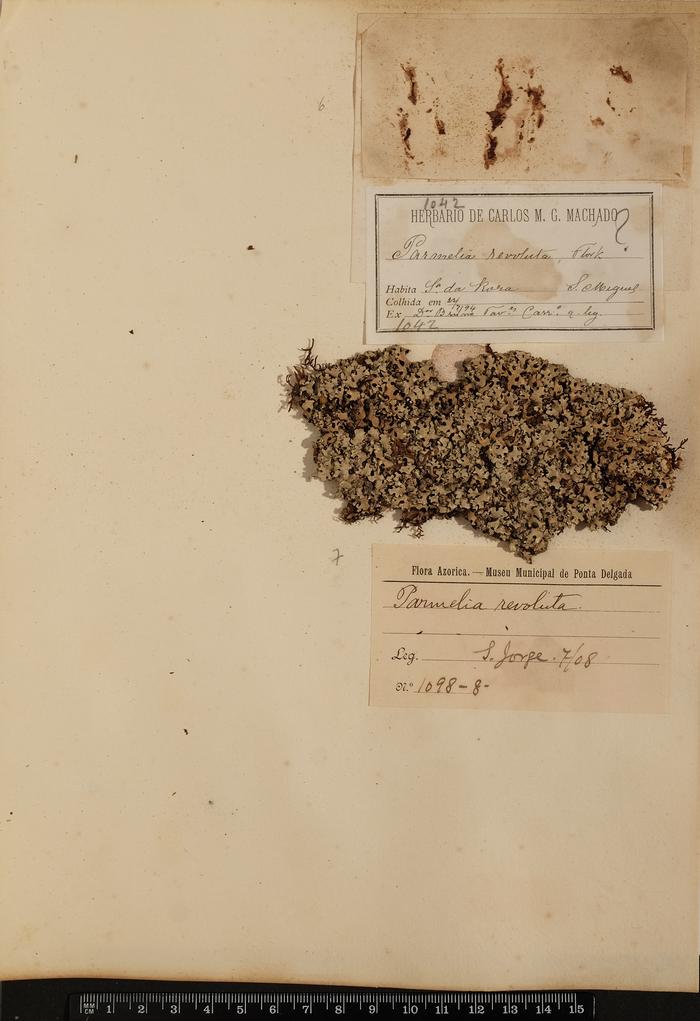 6
1042
HERBARIO DE CARLOS M. G. MACHADO ?
Parmelia revoluta, Flk.
Habita Sa. da S. Miguel
Colhida em
Ex Dor Bruno Tavres Carro. q. leg.
1042
7
Flora Azorica. — Museu Municipal de Ponta Delgada
Parmelia revoluta.
Leg. S. Jorge. 7/08
N.º 1098-8-
MM
CM 1 2 3 4 5 6 7 8 9 10 11 12 13 14 15